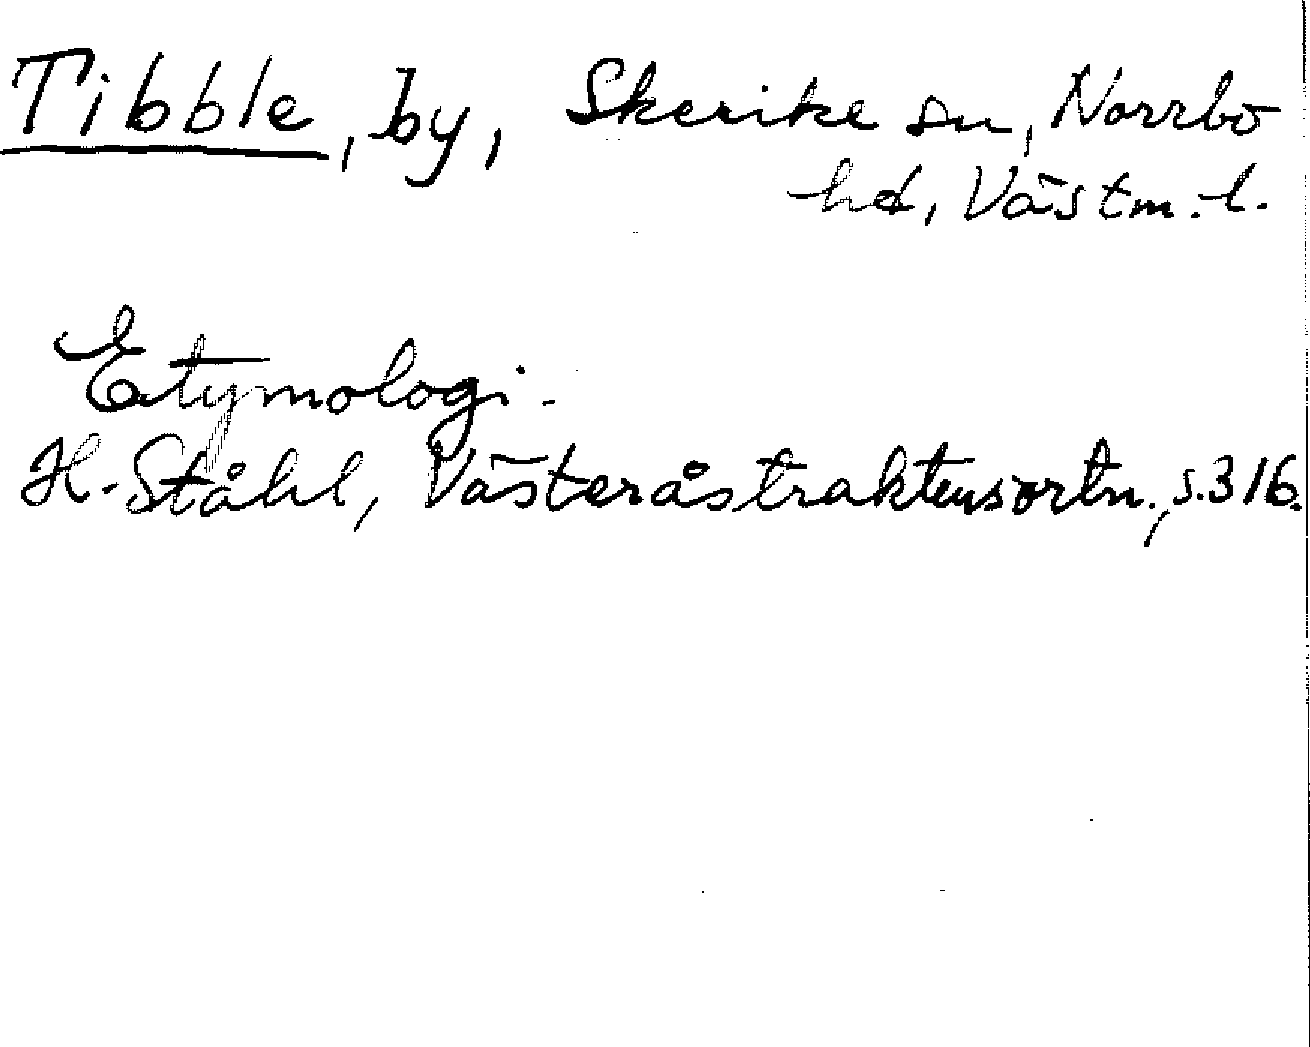 Tibble, by, Skerike sn, Norrbo
hd, Västm. l.
Etymologi.
H. Ståhl, Västeråstraktens ortn., s. 316.